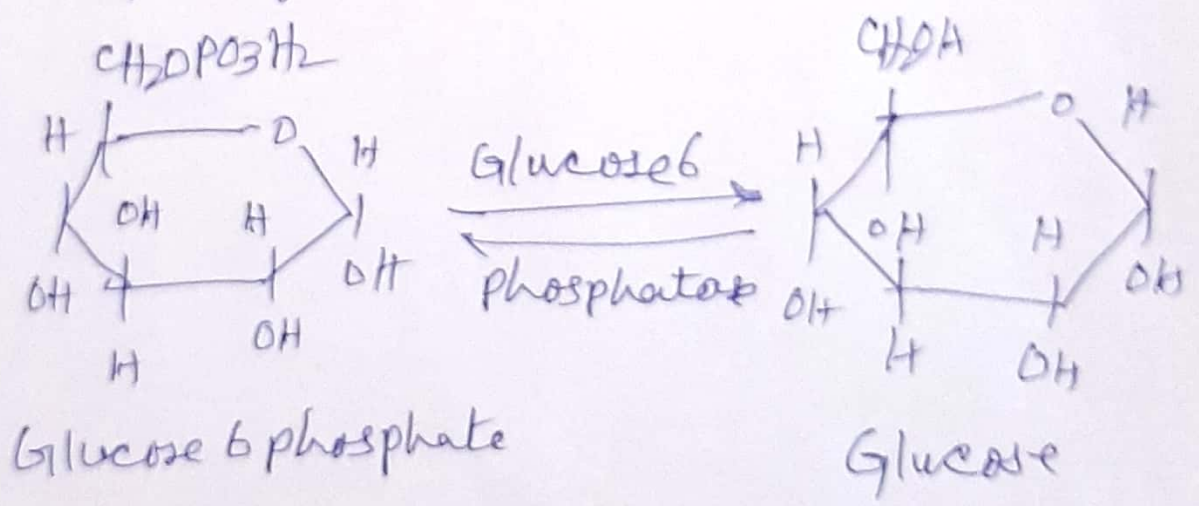 CH2OPO3H2
CH2OH
H O H
OH H
OH OH
H OH
Glucose 6 phosphate
Glucose 6
phosphatase
H O H
OH H
OH OH
H OH
Glucose